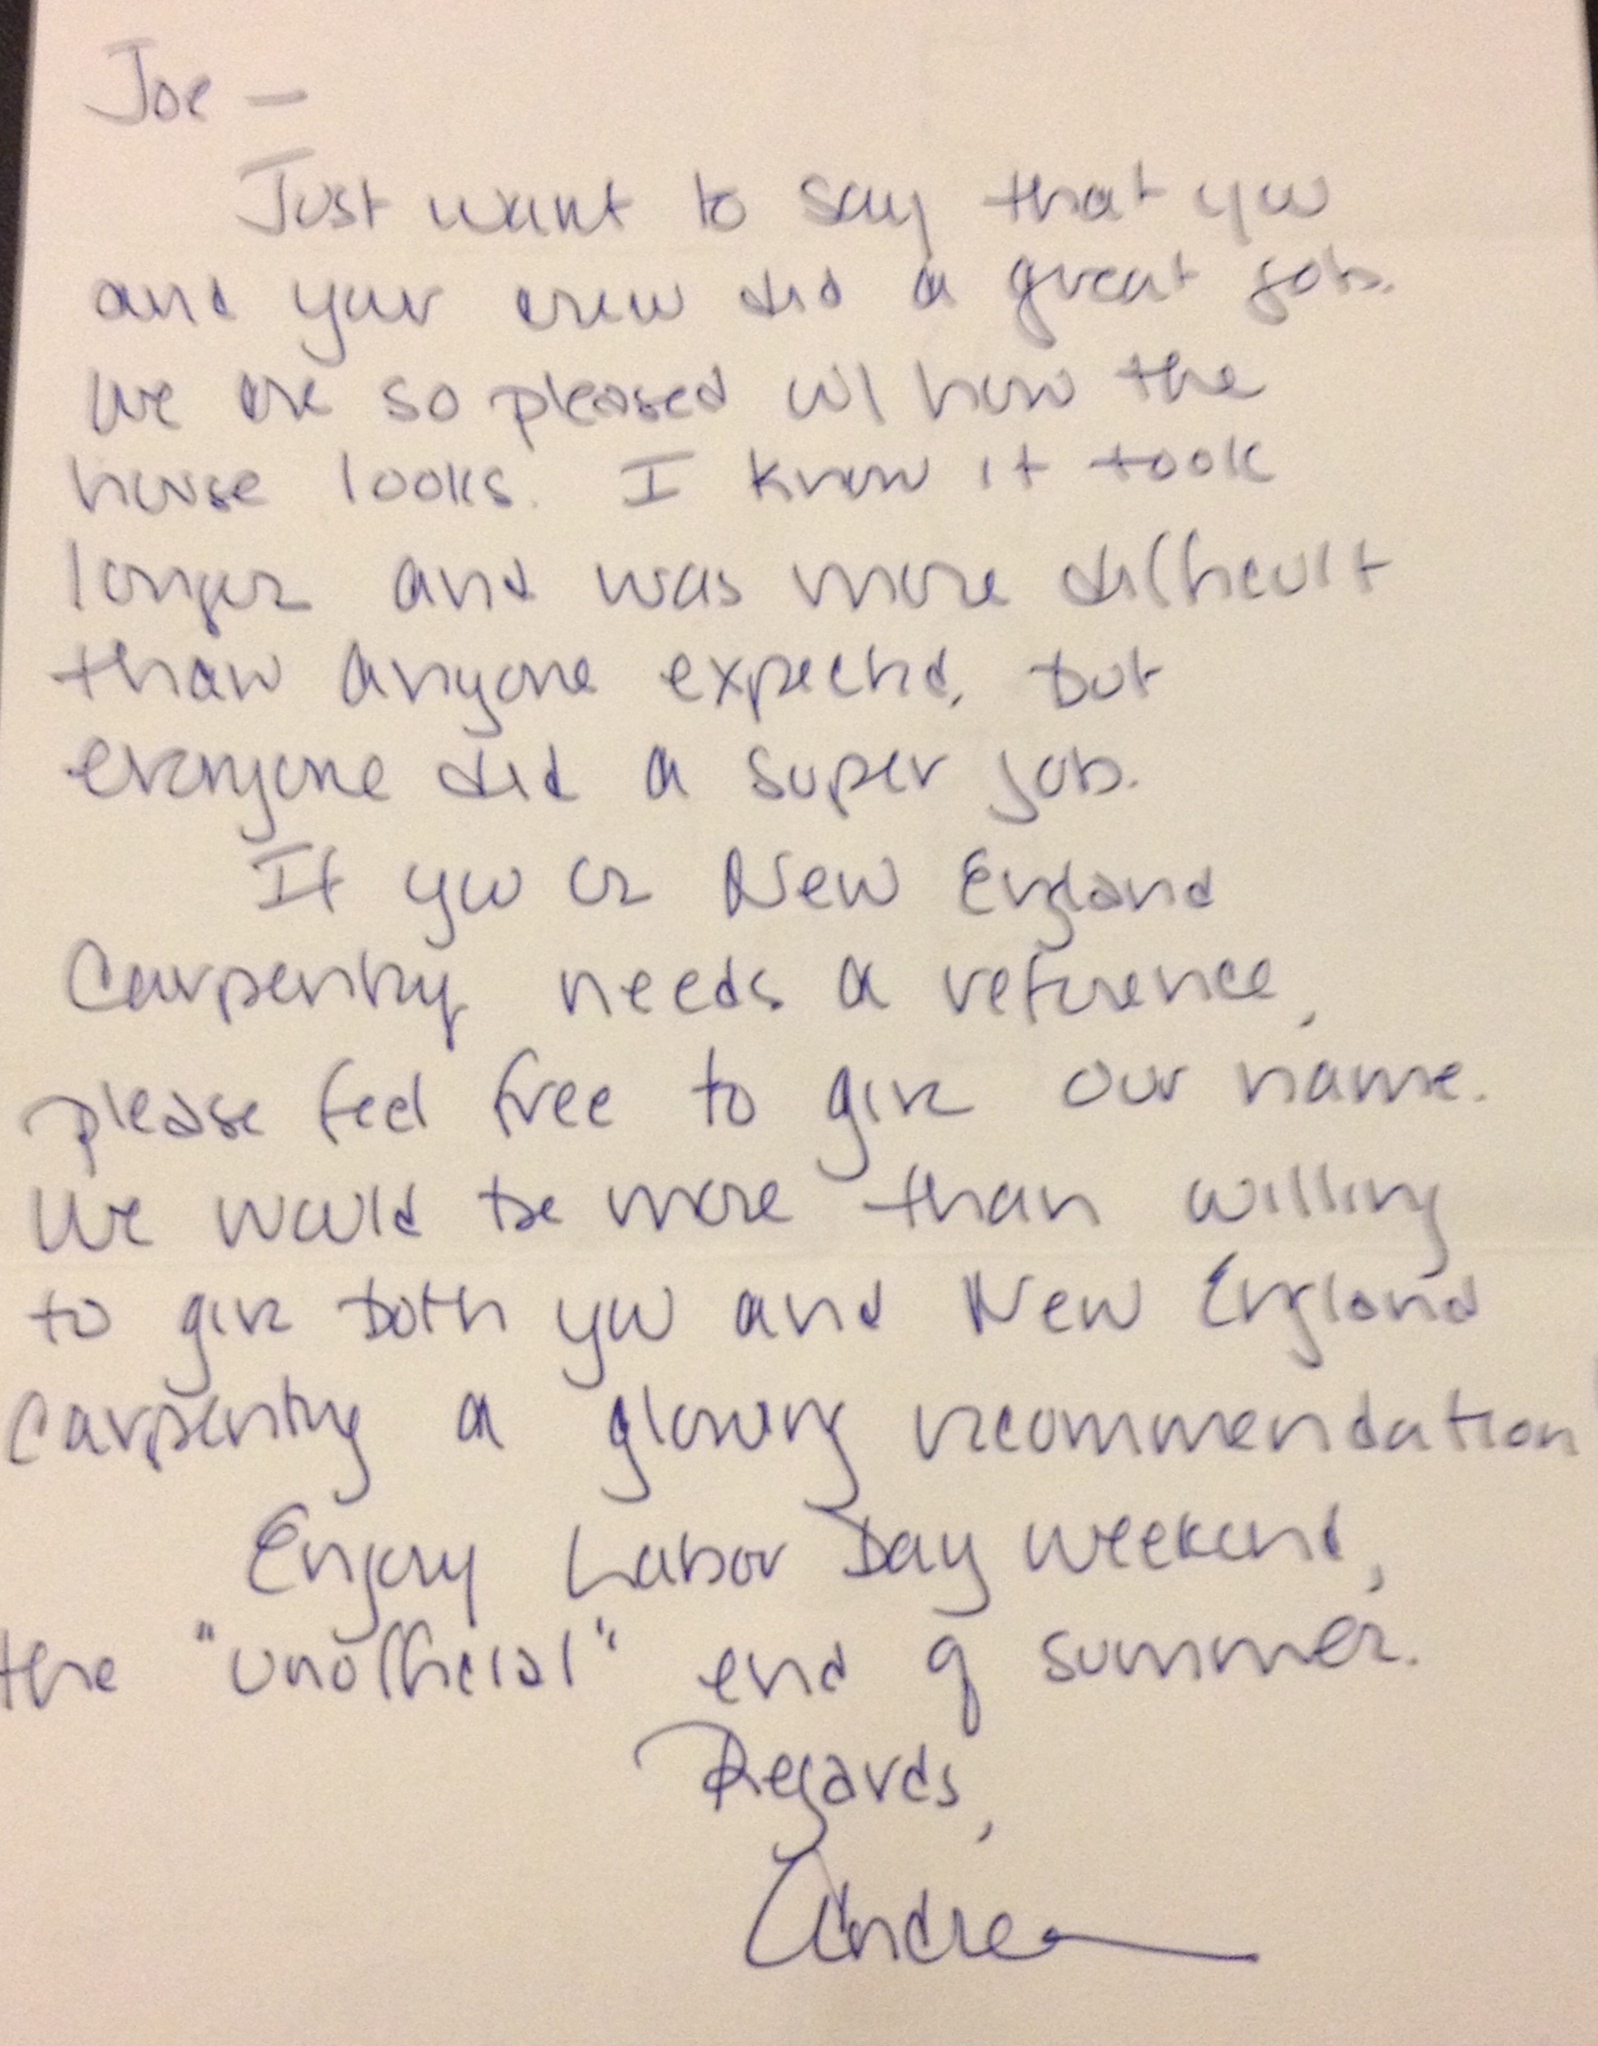 Joe —
Just want to say that you
and your crew did a great job.
We are so pleased w/ how the
house looks. I know it took
longer and was more difficult
than anyone expected, but
everyone did a super job.
If you or New England
Carpentry needs a reference,
please feel free to give our name.
We would be more than willing
to give both you and New England
Carpentry a glowing recommendation!
Enjoy Labor Day weekend,
the "unofficial" end of summer.
Regards,
Andrea